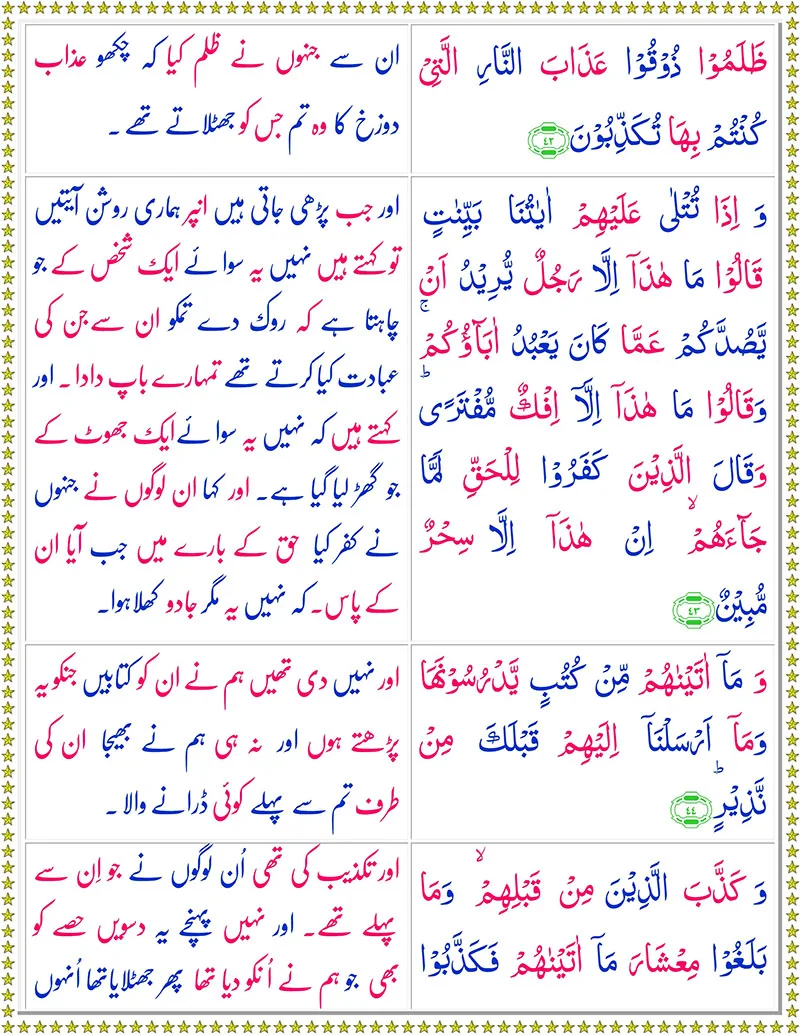 ظَلَمُوْا ذُوْقُوْا عَذَابَ النَّارِ الَّتِيْ
كُنْتُمْ بِهَا تُكَذِّبُوْنَ ٤٣
ان سے جنہوں نے ظلم کیا کہ چکھو عذاب
دوزخ کا وہ تم جس کو جھٹلاتے تھے۔
وَ اِذَا تُتْلٰى عَلَيْهِمْ اٰيٰتُنَا بَيِّنٰتٍ
قَالُوْا مَا هٰذَآ اِلَّا رَجُلٌ يُّرِيْدُ اَنْ
يَّصُدَّكُمْ عَمَّا كَانَ يَعْبُدُ اٰبَآؤُكُمْ ۚ
وَقَالُوْا مَا هٰذَآ اِلَّآ اِفْكٌ مُّفْتَرًى ؕ
وَقَالَ الَّذِيْنَ كَفَرُوْا لِلْحَقِّ لَمَّا
جَآءَهُمْ ۙ اِنْ هٰذَآ اِلَّا سِحْرٌ
مُّبِيْنٌ ٤٣
اور جب پڑھی جاتی ہیں انپر ہماری روشن آیتیں
تو کہتے ہیں نہیں یہ سوائے ایک شخص کے جو
چاہتا ہے کہ روک دے تمکو ان سے جن کی
عبادت کیا کرتے تھے تمہارے باپ دادا۔ اور
کہتے ہیں کہ نہیں یہ سوائے ایک جھوٹ کے
جو گھڑ لیا گیا ہے۔ اور کہا ان لوگوں نے جنہوں
نے کفر کیا حق کے بارے میں جب آیا ان
کے پاس۔ کہ نہیں یہ مگر جادو کھلا ہوا۔
وَ مَآ اٰتَيْنٰهُمْ مِّنْ كُتُبٍ يَّدْرُسُوْنَهَا
وَمَآ اَرْسَلْنَآ اِلَيْهِمْ قَبْلَكَ مِنْ
نَّذِيْرٍ ؕ ٤٤
اور نہیں دی تھیں ہم نے ان کو کتابیں جنکو یہ
پڑھتے ہوں اور نہ ہی ہم نے بھیجا ان کی
طرف تم سے پہلے کوئی ڈرانے والا۔
وَ كَذَّبَ الَّذِيْنَ مِنْ قَبْلِهِمْ ۙ وَمَا
بَلَغُوْا مِعْشَارَ مَآ اٰتَيْنٰهُمْ فَكَذَّبُوْا
اور تکذیب کی تھی اُن لوگوں نے جو اِن سے
پہلے تھے۔ اور نہیں پہنچے یہ دسویں حصے کو
بھی جو ہم نے اُنکو دیا تھا پھر جھٹلایا تھا اُنہوں